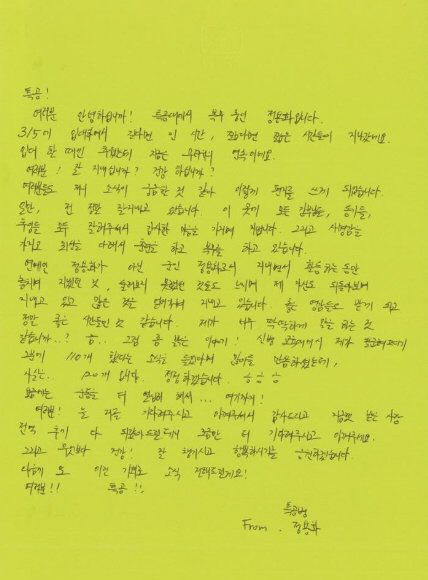 특공!
여러분 안녕하십니까! 특공대에서 복무 중인 정용화입니다.
3/5에 입대해서 길다면 긴 시간, 짧다면 짧은 시간들이 지나갔네요.
입대 할 때만 추웠는데 지금은 무더위의 연속이네요.
여러분! 잘 지내십니까? 건강하십니까?
여러분들도 저의 소식이 궁금한 것 같아 이렇게 편지를 쓰게 되었습니다.
일단, 전 정말 잘지내고 있습니다. 이 곳의 모든 간부님들, 동기들,
후임들 모두 잘해주셔서 감사한 마음을 가지며 지냅니다. 그리고 사명감을
가지고 최선을 다해서 훈련을 하고 복무를 하고 있습니다.
연예인 정용화가 아닌 군인 정용화로서 지내면서 활동하는 동안
놓치며 지냈던 것, 몰랐던 것들도 느끼며 제 자신도 되돌아보며
지내고 있고 많은 것을 담아가며 지내고 있습니다. 좋은 영향들도 받게 되고
정말 좋은 시간들인 것 같습니다. 제가 너무 딱딱하게 말을 하는 것
같습니까..? 흠.. 그럼 좀 밝은 이야기! 신병 교육대에서 제가 팔굽혀펴기
2분에 110개 했다는 소식을 들으시며 많이들 반응하셨는데,
사실은.. 120개 입니다. 정정하겠습니다. ㅎㅎㅎ
요즘에는 운동을 더 열심히 해서... 여기까지!
여러분! 늘 저를 기다려주시고 아껴주셔서 감사드리고 지금껏 받은 사랑
전역 후에 다 되돌려드릴테니 그동안 더 기다려주시고 아껴주세요.
그리고 무엇보다 건강! 잘 챙기시고 행복하시길 응원하겠습니다.
다음에 또 이런 기회로 소식 전해드릴게요!
여러분!! 특공!!
특공병
From. 정용화